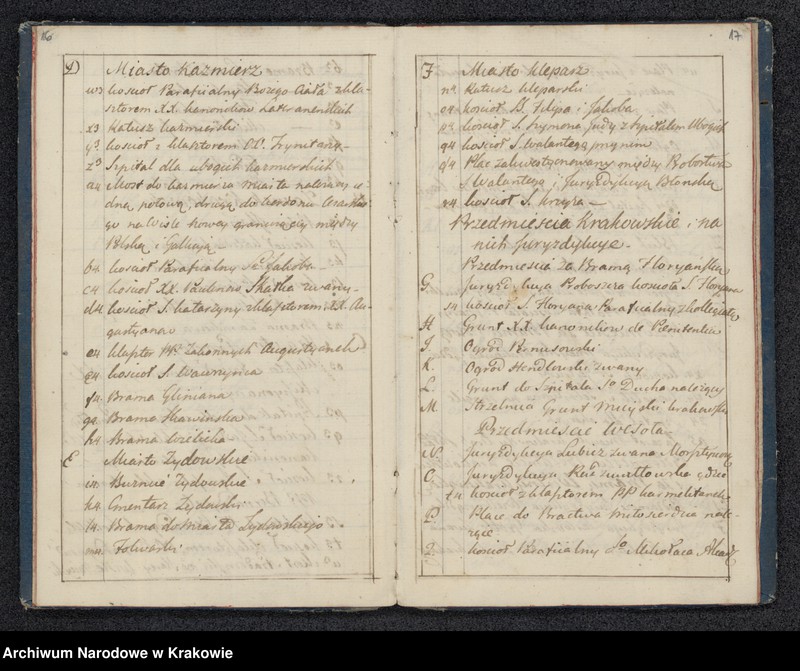 16
D) Miasto Kazmierz
w3 kosciół Parafialny Bożego Ciała z kla-
sztorem XX. kanoników Lateranenskich
x3 Ratusz kazmierski
y3 kosciół z klasztorem OO. Trynitarz
z3 Szpital dla ubogich kazmierskich
a4 Most do kazmierza miasta należący
dną połową, drugą do kordonu
go na Wiśle nowey graniczący między
Polską i Galicyą
b4 kosciół Parafialny So Jakoba
c4 kosciół XX. Paulinów Skałka zwany
d4 kosciół S. katarzyny z klasztorem XX. Au-
gustyanow
e4 klasztor PP. zakonnych Augustyanek
kosciół S. Wawrzyńca
f4 Brama Gliniana
g4 Brama Skawinska
h4 Brama Wielicka
E Miasto Żydowskie
i4 Buznice żydowskie
k4 Cmentarz Żydowski
l4 Brama do miasta Żydowskiego
m4 Folwarki
17
F Miasto Kleparz
n4 Ratusz kleparski
o4 kosciół SS. Filipa i Jakoba
p4 kosciół S. Szymona Judy z szpitalem Ubogich
q4 kosciół S. Walantego
Plac zakwestyonowany między Probostwem
S Walantego i Juryzdykcyą Błonską
r4 kosciół S. krzyża
Przedmieścia Krakowskie i na
nich Juryzdykcye
Przedmieście za Bramą Floryańską
G. Juryzdykcya Proboszcza kościoła S. Floryana
s4 kosciół S. Floryana Parafialny z kollegiatą
H Grunt XX. kanoników de Penitentia
J. Ogrod
K. Ogrod zwany
L. Grunt do Szpitala So Ducha należący
M. Strzelnica Grunt Mieyski krakowski
Przedmieście Wesoła
N. Juryzdykcya Lubicz zwana
O. Juryzdykcya gdzie
t4 kosciół z klasztorem PP karmelitanek
P. Place do Bractwa Miłosierdzia nale-
żące
Q. kosciół Parafialny So Mikołaia
Archiwum Narodowe w Krakowie